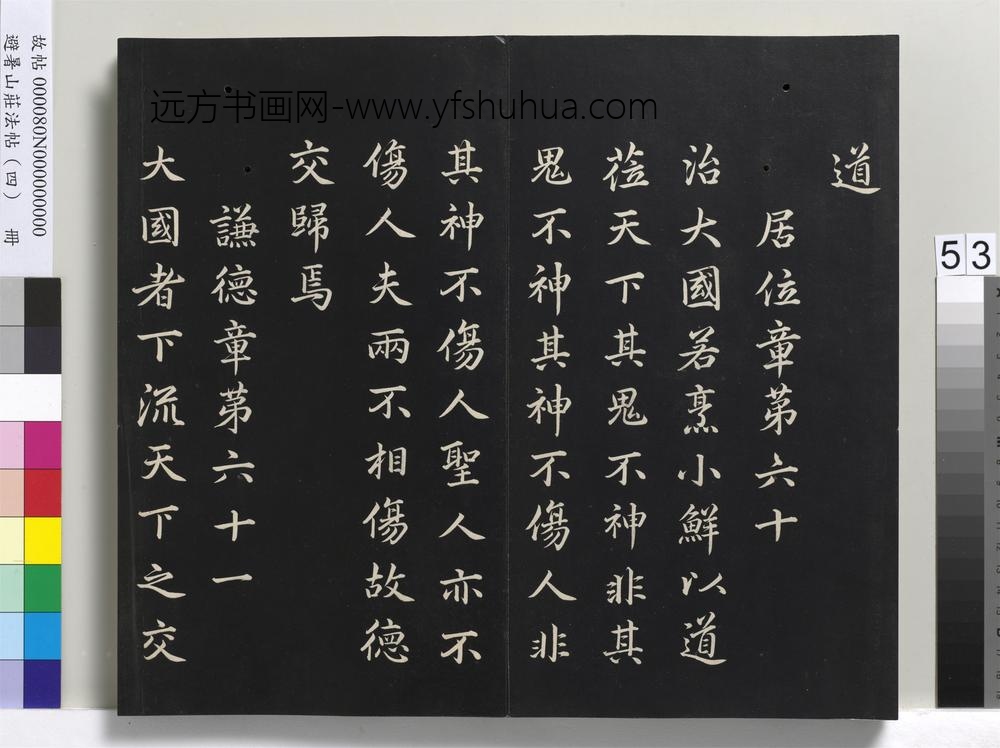 道
居位章第六十
治大國若烹小鮮以道
莅天下其鬼不神非其
鬼不神其神不傷人非
其神不傷人聖人亦不
傷人夫兩不相傷故德
交歸焉
謙德章第六十一
大國者下流天下之交
远方书画网-www.yfshuhua.com
故帖 000080N000000000
避暑山莊法帖（四） 冊
53